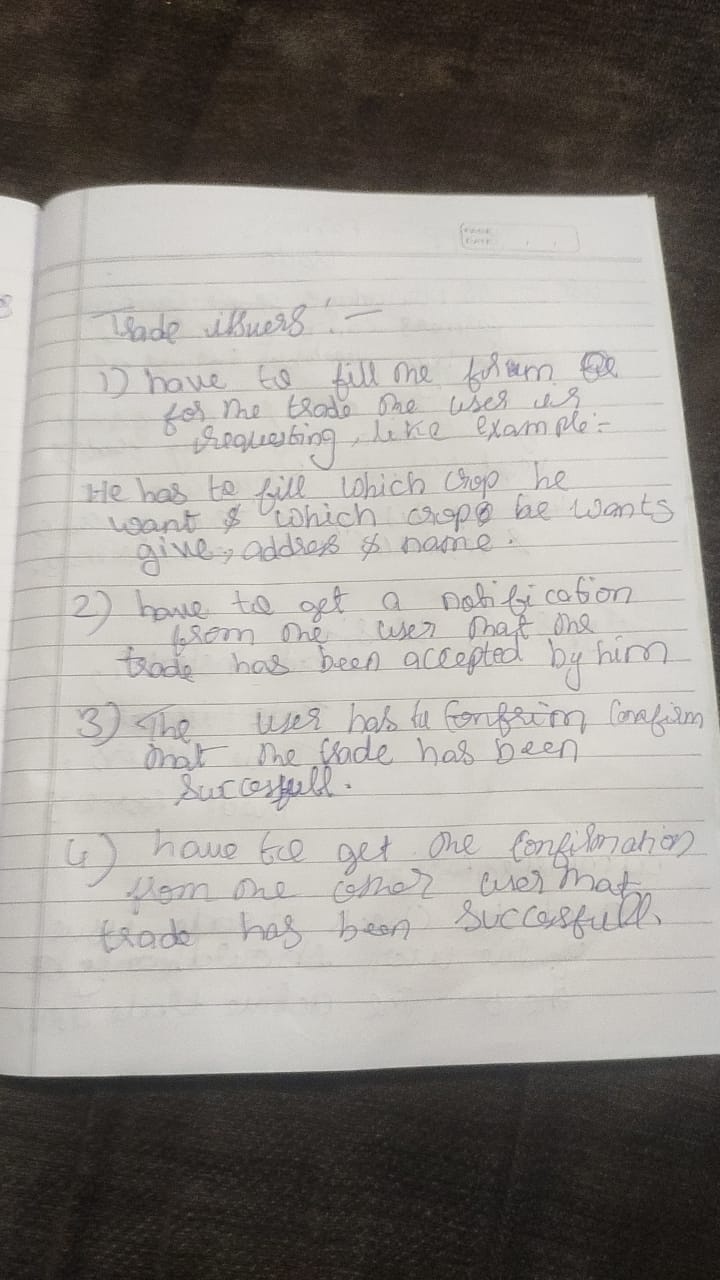 Trade issuers :-
1) have to fill the form
for the trade the user is
requesting, like example :-
He has to fill which crop he
want & which crop he wants
give, address & name.
2) have to get a notification
from the user that the
trade has been accepted by him
3) The user has to Confrim Confirm
that the trade has been
Succesfull.
4) have to get the Confirmation
from the other user that
trade has been Succesfull.